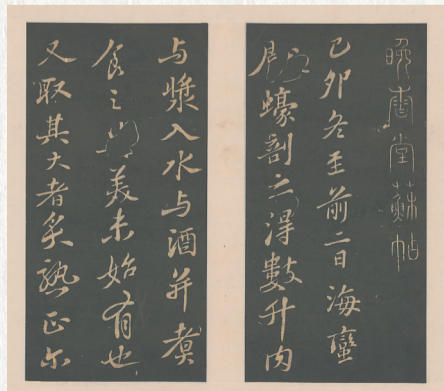 晚香堂蘇帖
己卯冬至前二日海蠻
獻蠔剖之得數升肉
与漿入水与酒并煑
食之甚美未始有也
又取其大者炙熟正尔